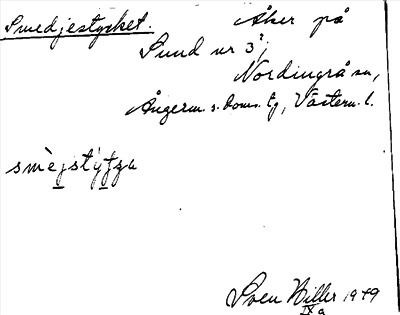 Smedjestycket. Åker på
Sund nr 3²,
Nordingrå sn,
Ångerm. s. doms. tg, Västern. l.
smèjstỳʈʂa
Sven Hiller 1949
IX a